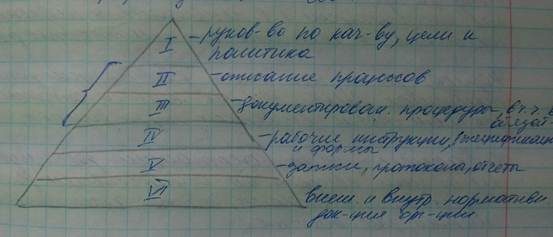 I - руков-во по кач-ву, цели и
политика
II - описание процессов
III - документирован. процедуры, в т.ч. в
IV - рабочие инструкции,
и формы
V - записи, протокола, отчеты
VI внеш и внутр. нормативн
док-ция орг-ции